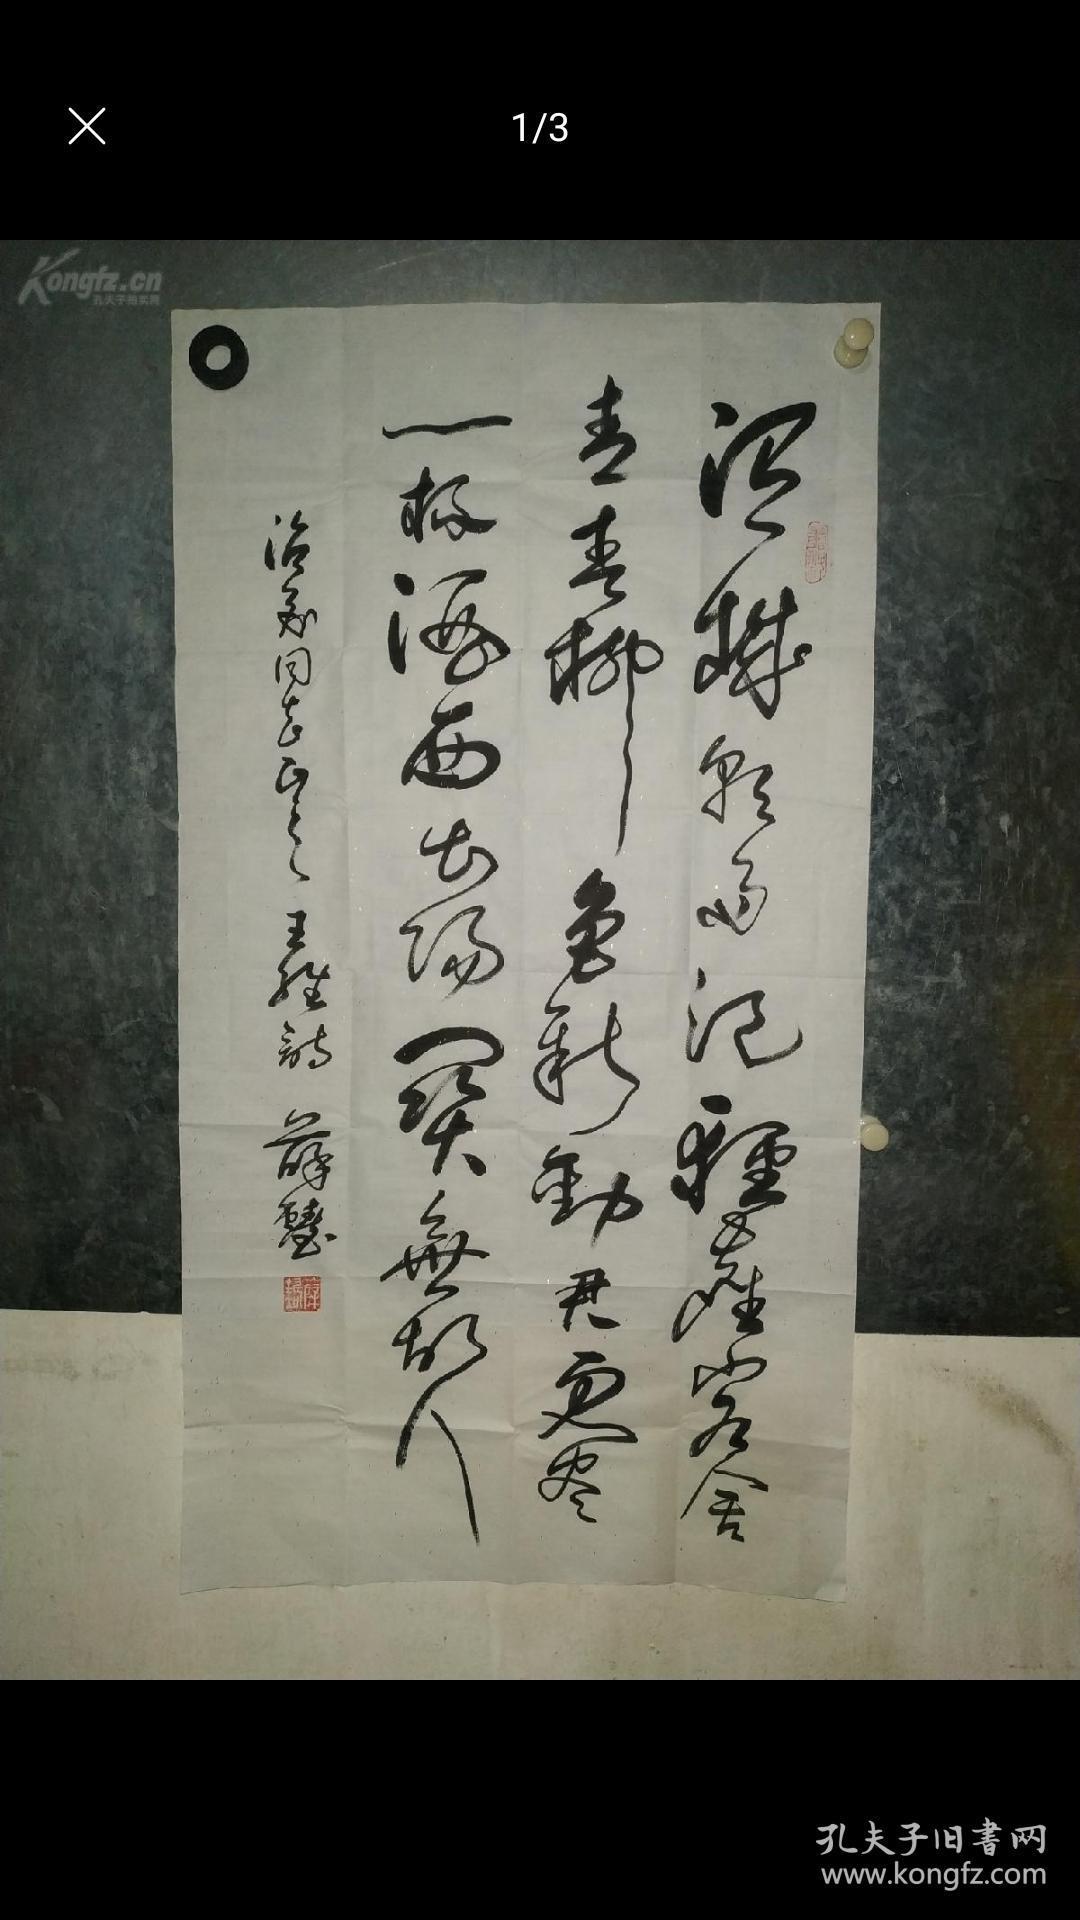 1/3
Kongfz.cn
孔夫子拍卖网
渭城朝雨浥輕塵客舍
青青柳色新勸君更尽
一杯酒西出陽關無故人
同志正之 王維詩 薛
孔夫子旧书网
www.kongfz.com